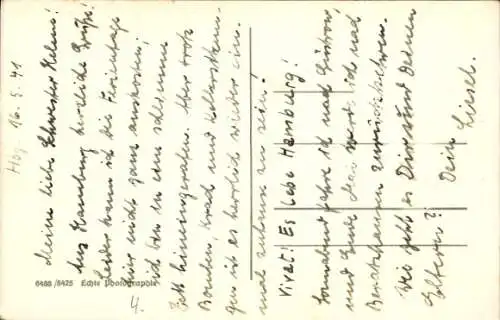 Hbg 16.5.41
Meine liebe Schwester Helene!
Aus Hamburg herzliche Grüße!
Leider kann ich die Freientage
hier nicht ganz auskosten,
ich bin in eine schlimme
Zeit hineingeraten. Aber trotz
Bomben, Krach und Kellersitzun-
gen ist es herrlich wieder ein-
mal zuhause zu sein!
Vivat! Es lebe Hamburg!
Sonnabend fahre ich nach Güstrow,
und Ende Mai werde ich nach
zurückkehren.
Wie geht es Dir und Deinen
Eltern?
Dein Liesel.
6488/8425 Echte Photographie
4.